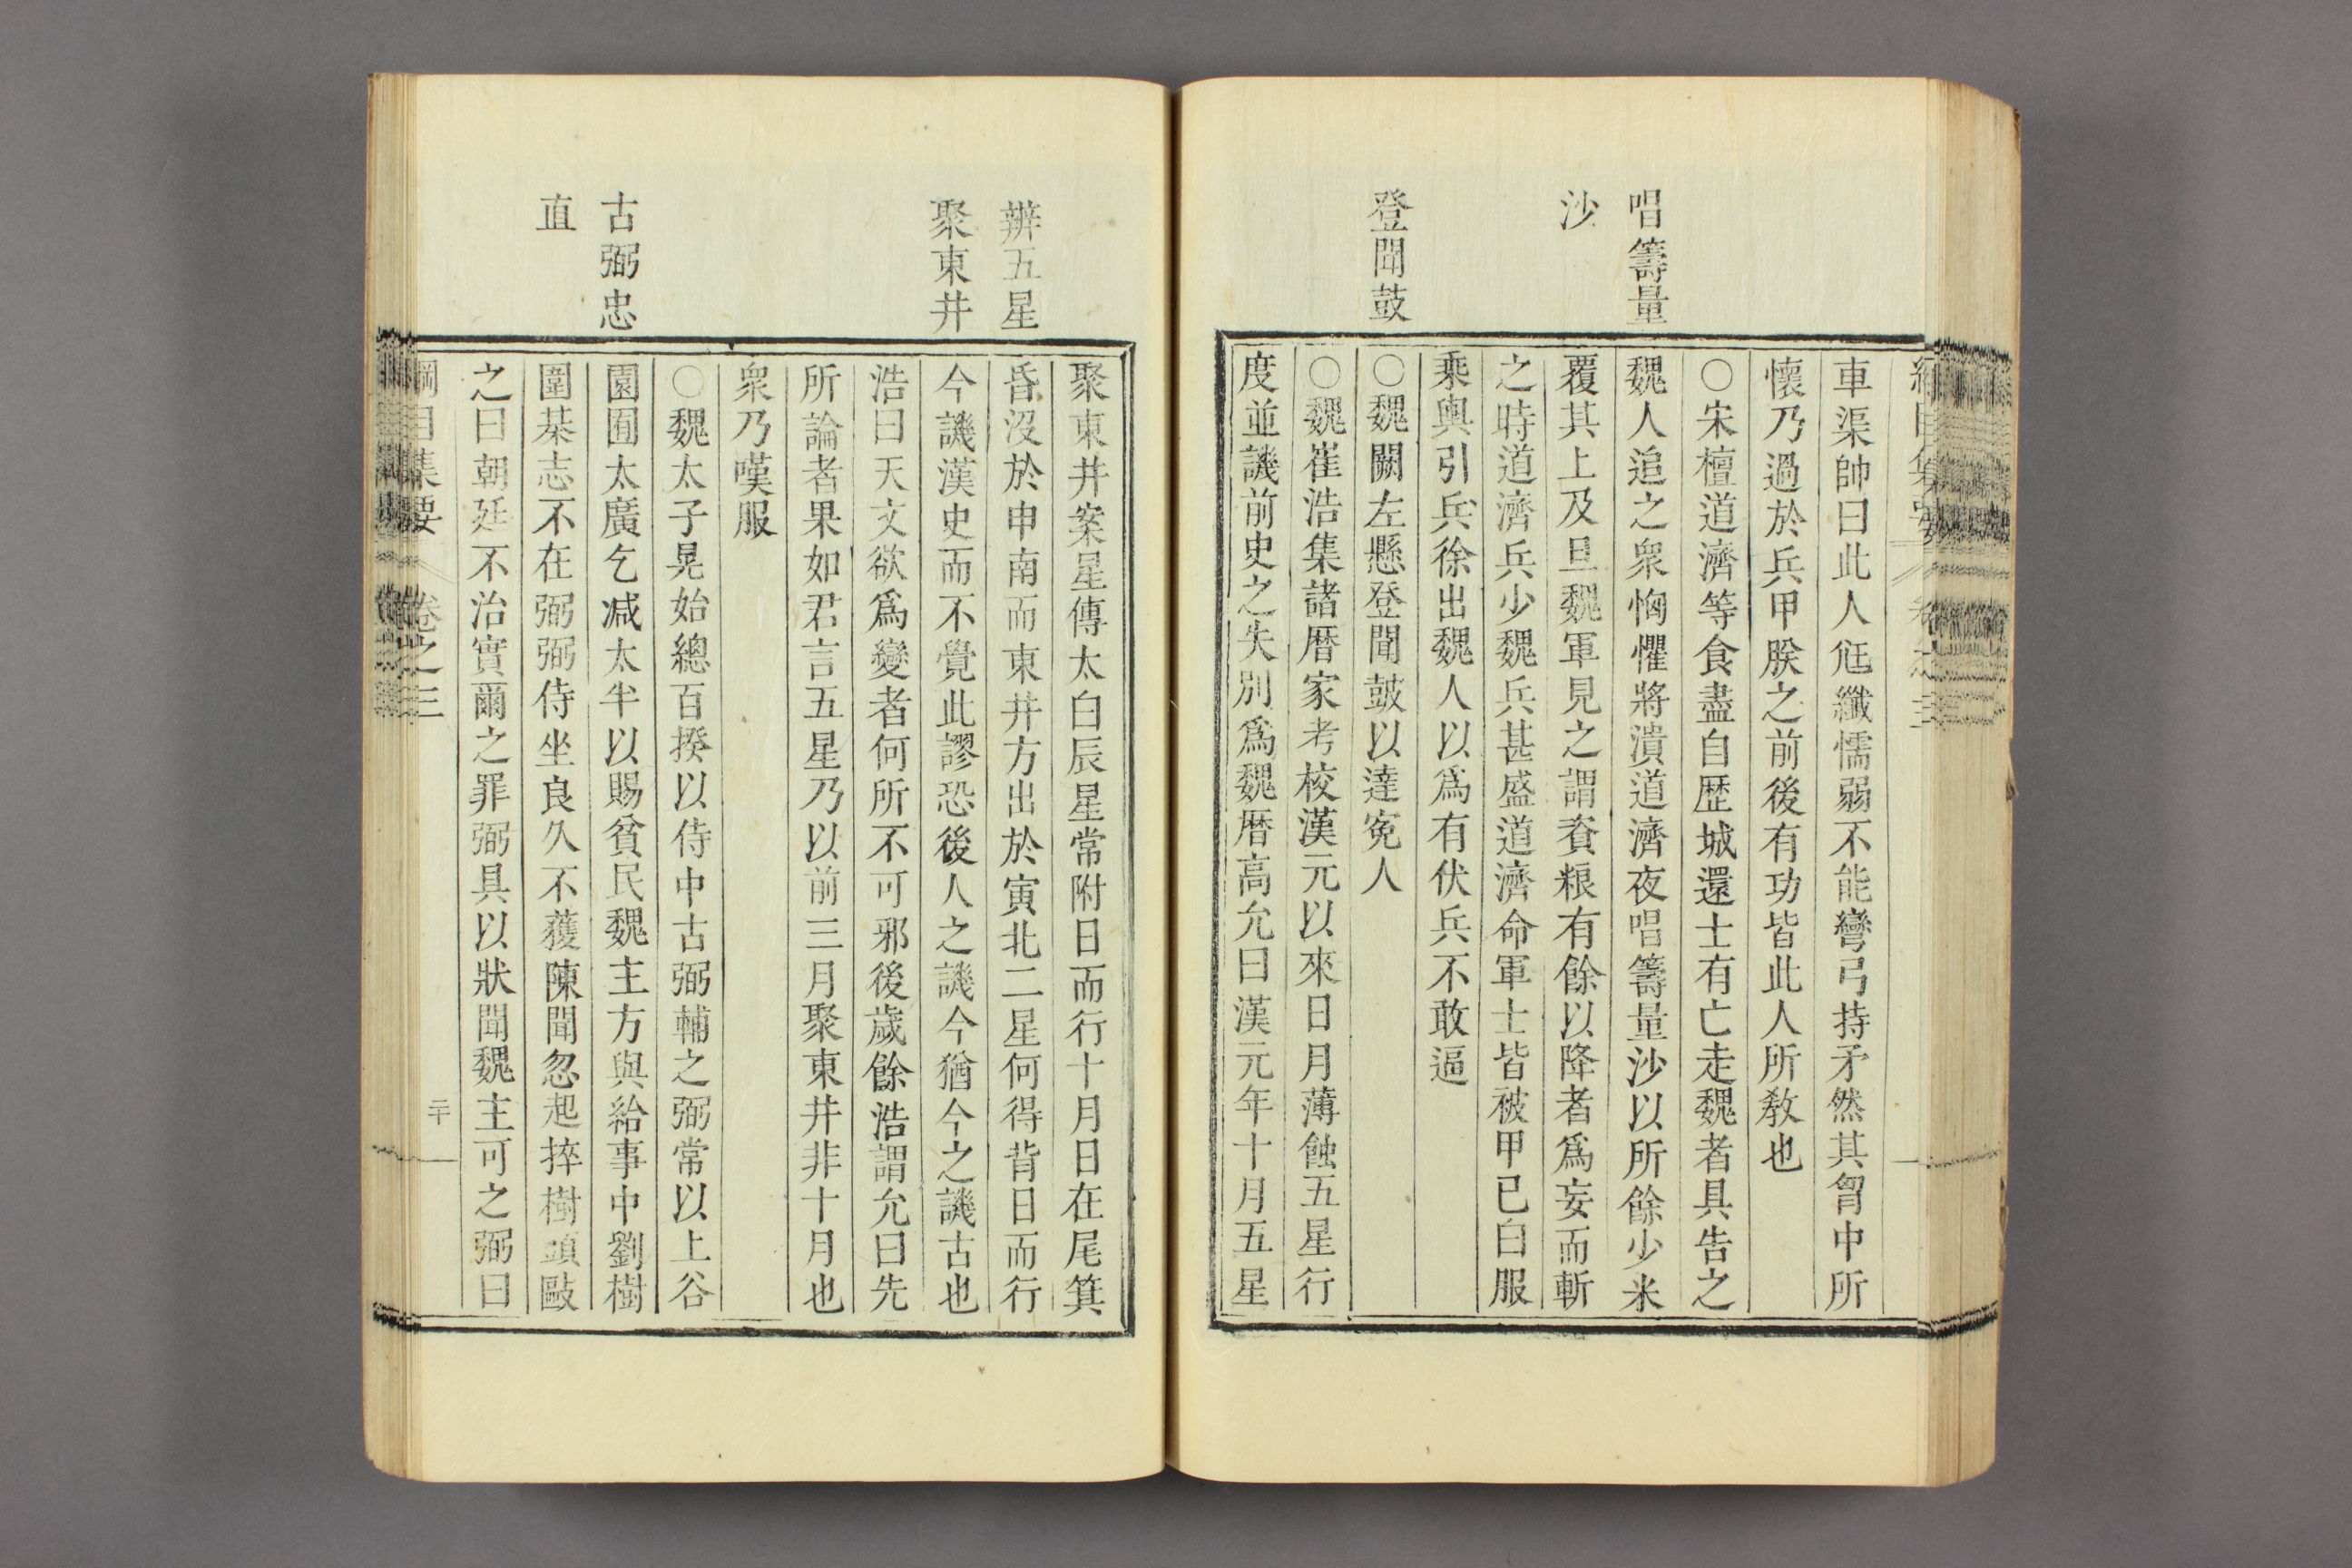 唱籌量
沙
登聞鼓
車渠帥曰此人尫纖懦弱不能彎弓持矛然其胷中所
懷乃過於兵甲朕之前後有功皆此人所教也
○宋檀道濟等食盡自歷城還士有亡走魏者具告之
魏人追之衆恟懼將潰道濟夜唱籌量沙以所餘少米
覆其上及旦魏軍見之謂資粮有餘以降者爲妄而斬
之時道濟兵少魏兵甚盛道濟命軍士皆被甲已白服
乘輿引兵徐出魏人以爲有伏兵不敢逼
○魏闕左懸登聞鼓以達冤人
○魏崔浩集諸曆家考校漢元以來日月薄蝕五星行
度並譏前史之失別爲魏曆高允曰漢元年十月五星
辨五星
聚東井
古弼忠
直
聚東井案星傳太白辰星常附日而行十月日在尾箕
昏沒於申南而東井方出於寅北二星何得背日而行
今譏漢史而不覺此謬恐後人之譏今猶今之譏古也
浩曰天文欲爲變者何所不可邪後歲餘浩謂允曰先
所論者果如君言五星乃以前三月聚東井非十月也
衆乃嘆服
○魏太子晃始總百揆以侍中古弼輔之弼常以上谷
園囿太廣乞減太半以賜貧民魏主方與給事中劉樹
圍棊志不在弼弼侍坐良久不獲陳聞忽起捽樹頭毆
之曰朝廷不治實爾之罪弼具以狀聞魏主可之弼曰
綱目集要 卷之三 二十